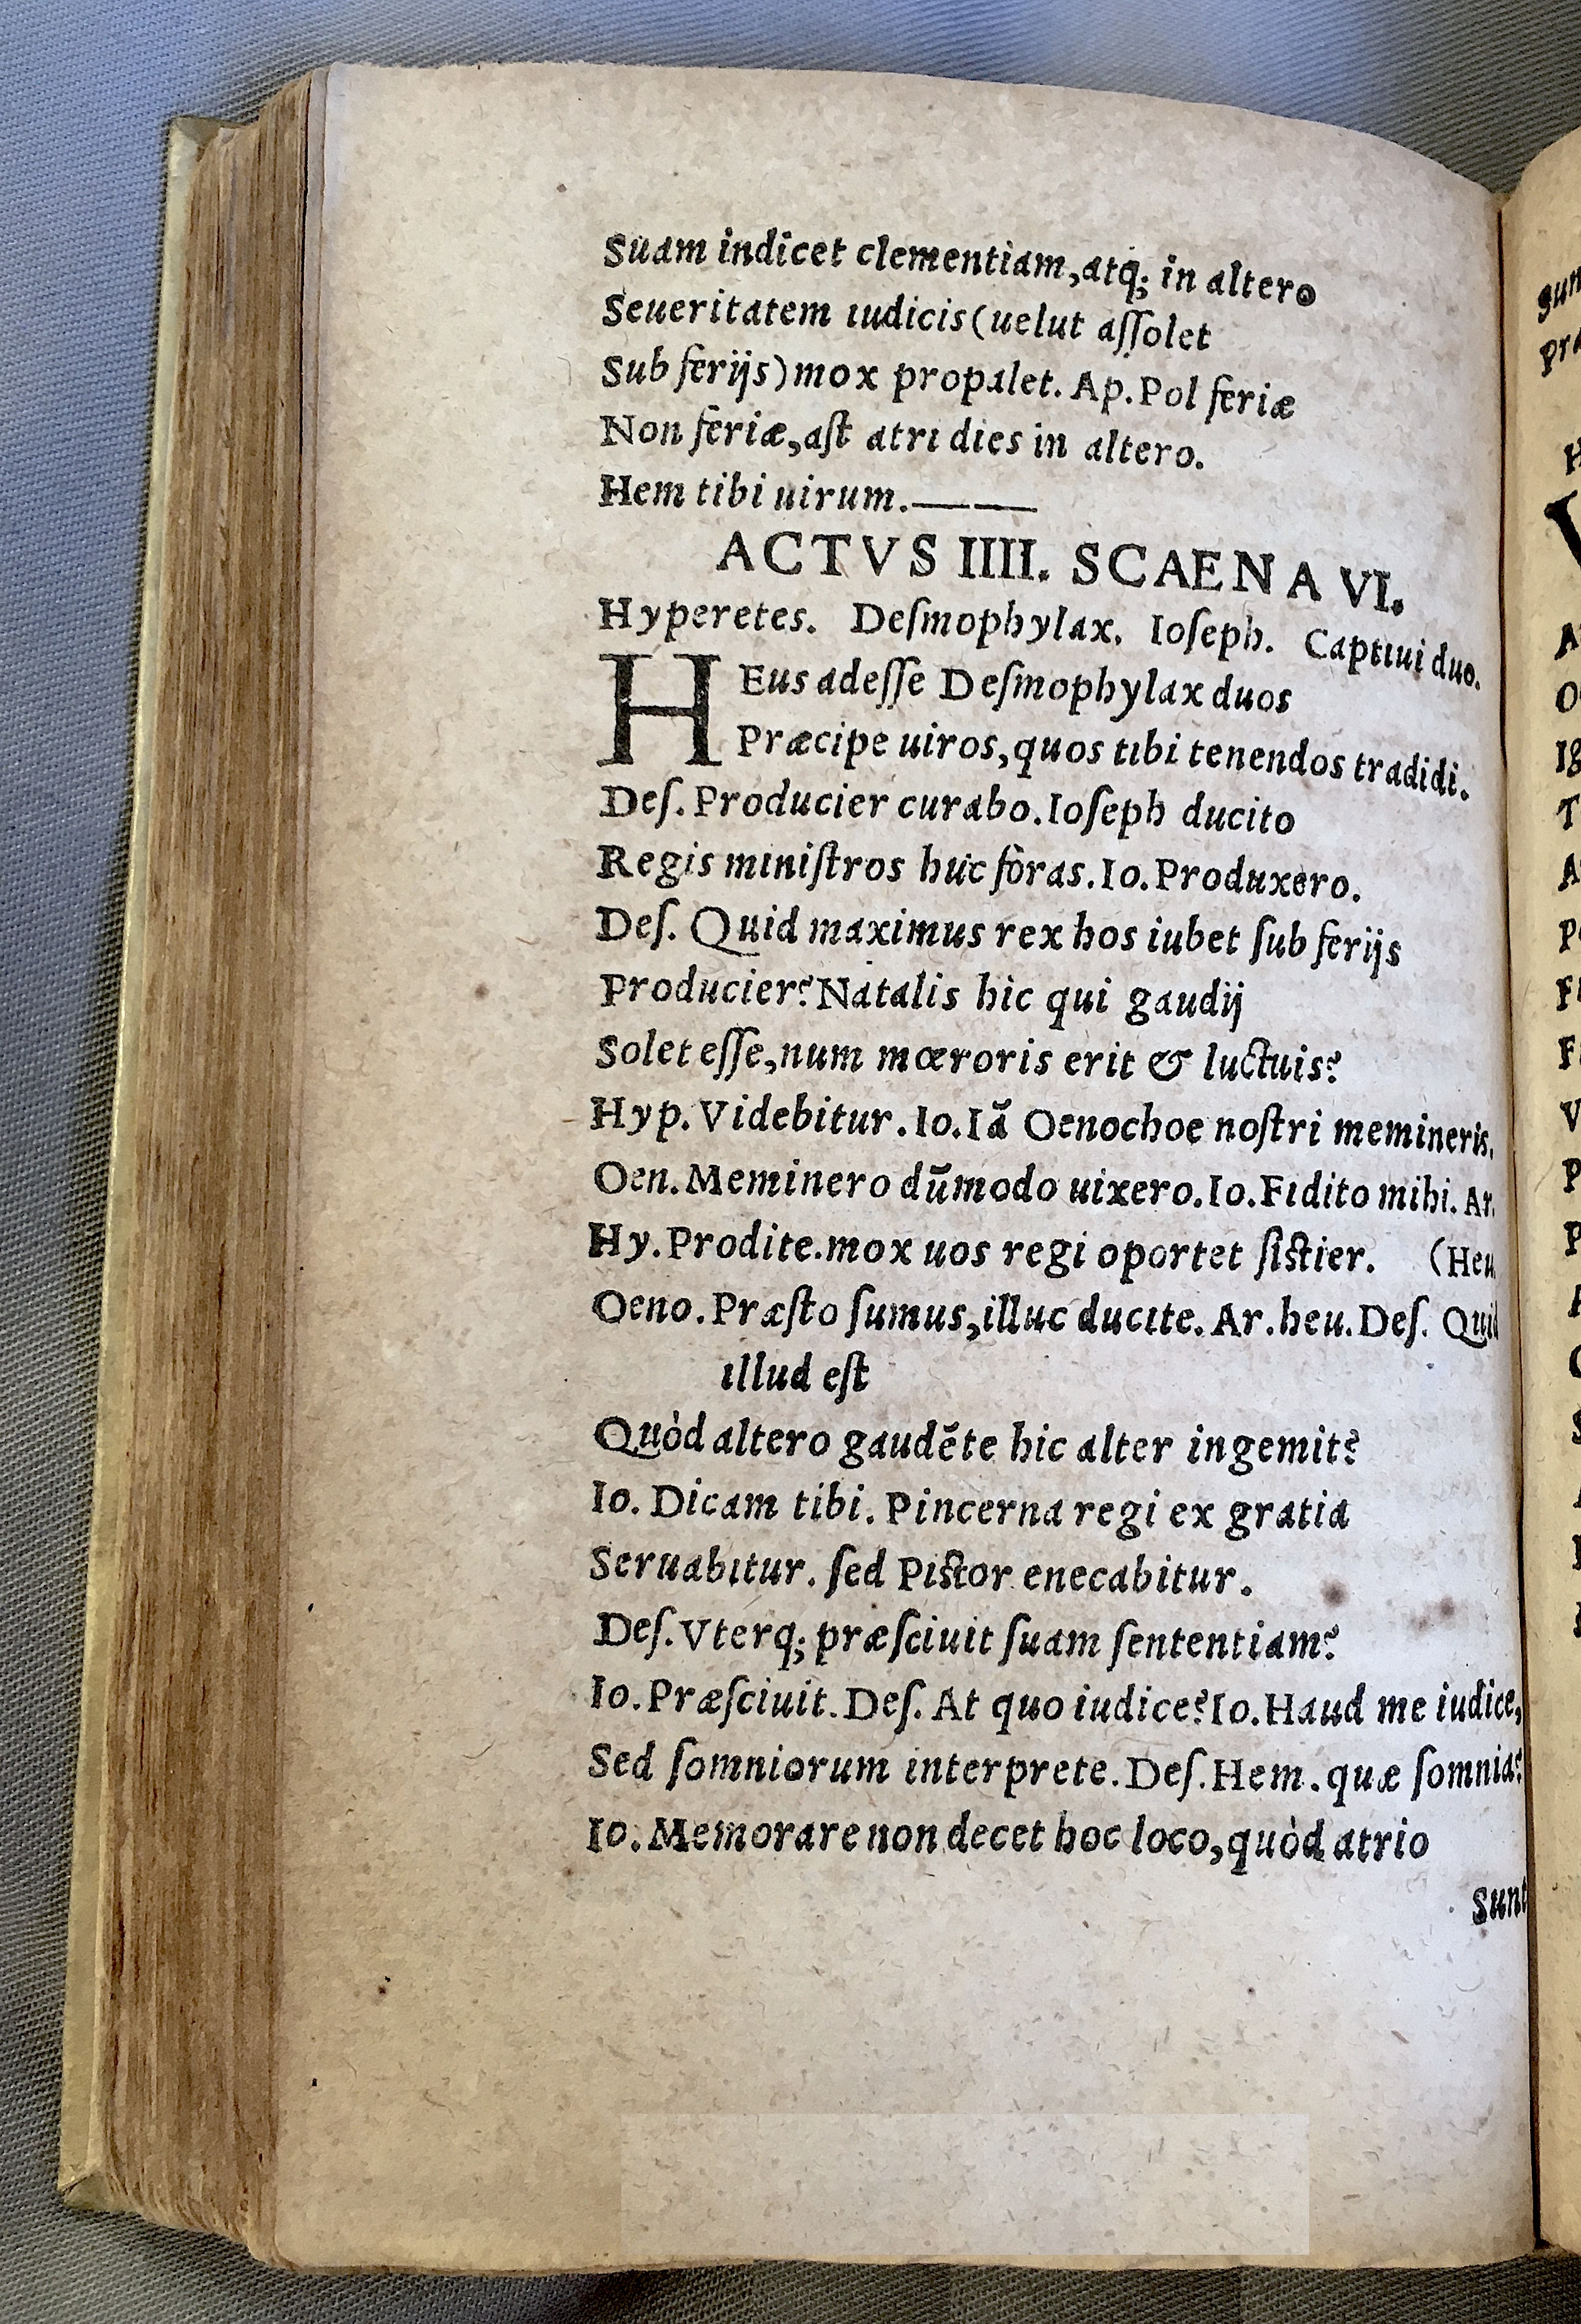 Suam indicet clementiam,atq; in altero
Seueritatem iudicis(uelut aſſolet
Sub ferijs)mox propalet. Ap. Pol feriæ
Non feriæ,aſt atri dies in altero.
Hem tibi uirum.———
ACTVS IIII. SCAENA VI.
Hyperetes. Deſmophylax. Ioſeph. Captiui duo.
HEus adeſſe Deſmophylax duos
Præcipe uiros,quos tibi tenendos tradidi.
Deſ. Producier curabo. Ioſeph ducito
Regis miniſtros huc foras. Io. Produxero.
Deſ. Quid maximus rex hos iubet ſub ferijs
Producier? Natalis hic qui gaudij
Solet eſſe,num mœroris erit & luctuis?
Hyp. Videbitur. Io. Iā Oenochoe noſtri memineris.
Oen. Meminero dūmodo uixero. Io. Fidito mihi. Ar.
Hy. Prodite. mox uos regi oportet ſiſtier. (Heu
Oeno. Præſto ſumus,illuc ducite. Ar. heu. Deſ. Quid
illud eſt
Quòd altero gaudēte hic alter ingemit?
Io. Dicam tibi. Pincerna regi ex gratia
Seruabitur. ſed Piſtor enecabitur.
Deſ. Vterq; præſciuit ſuam ſententiam?
Io. Præſciuit. Deſ. At quo iudice? Io. Haud me iudice,
Sed ſomniorum interprete. Deſ. Hem. quæ ſomnia?
Io. Memorare non decet hoc loco,quòd atrio
Sunt